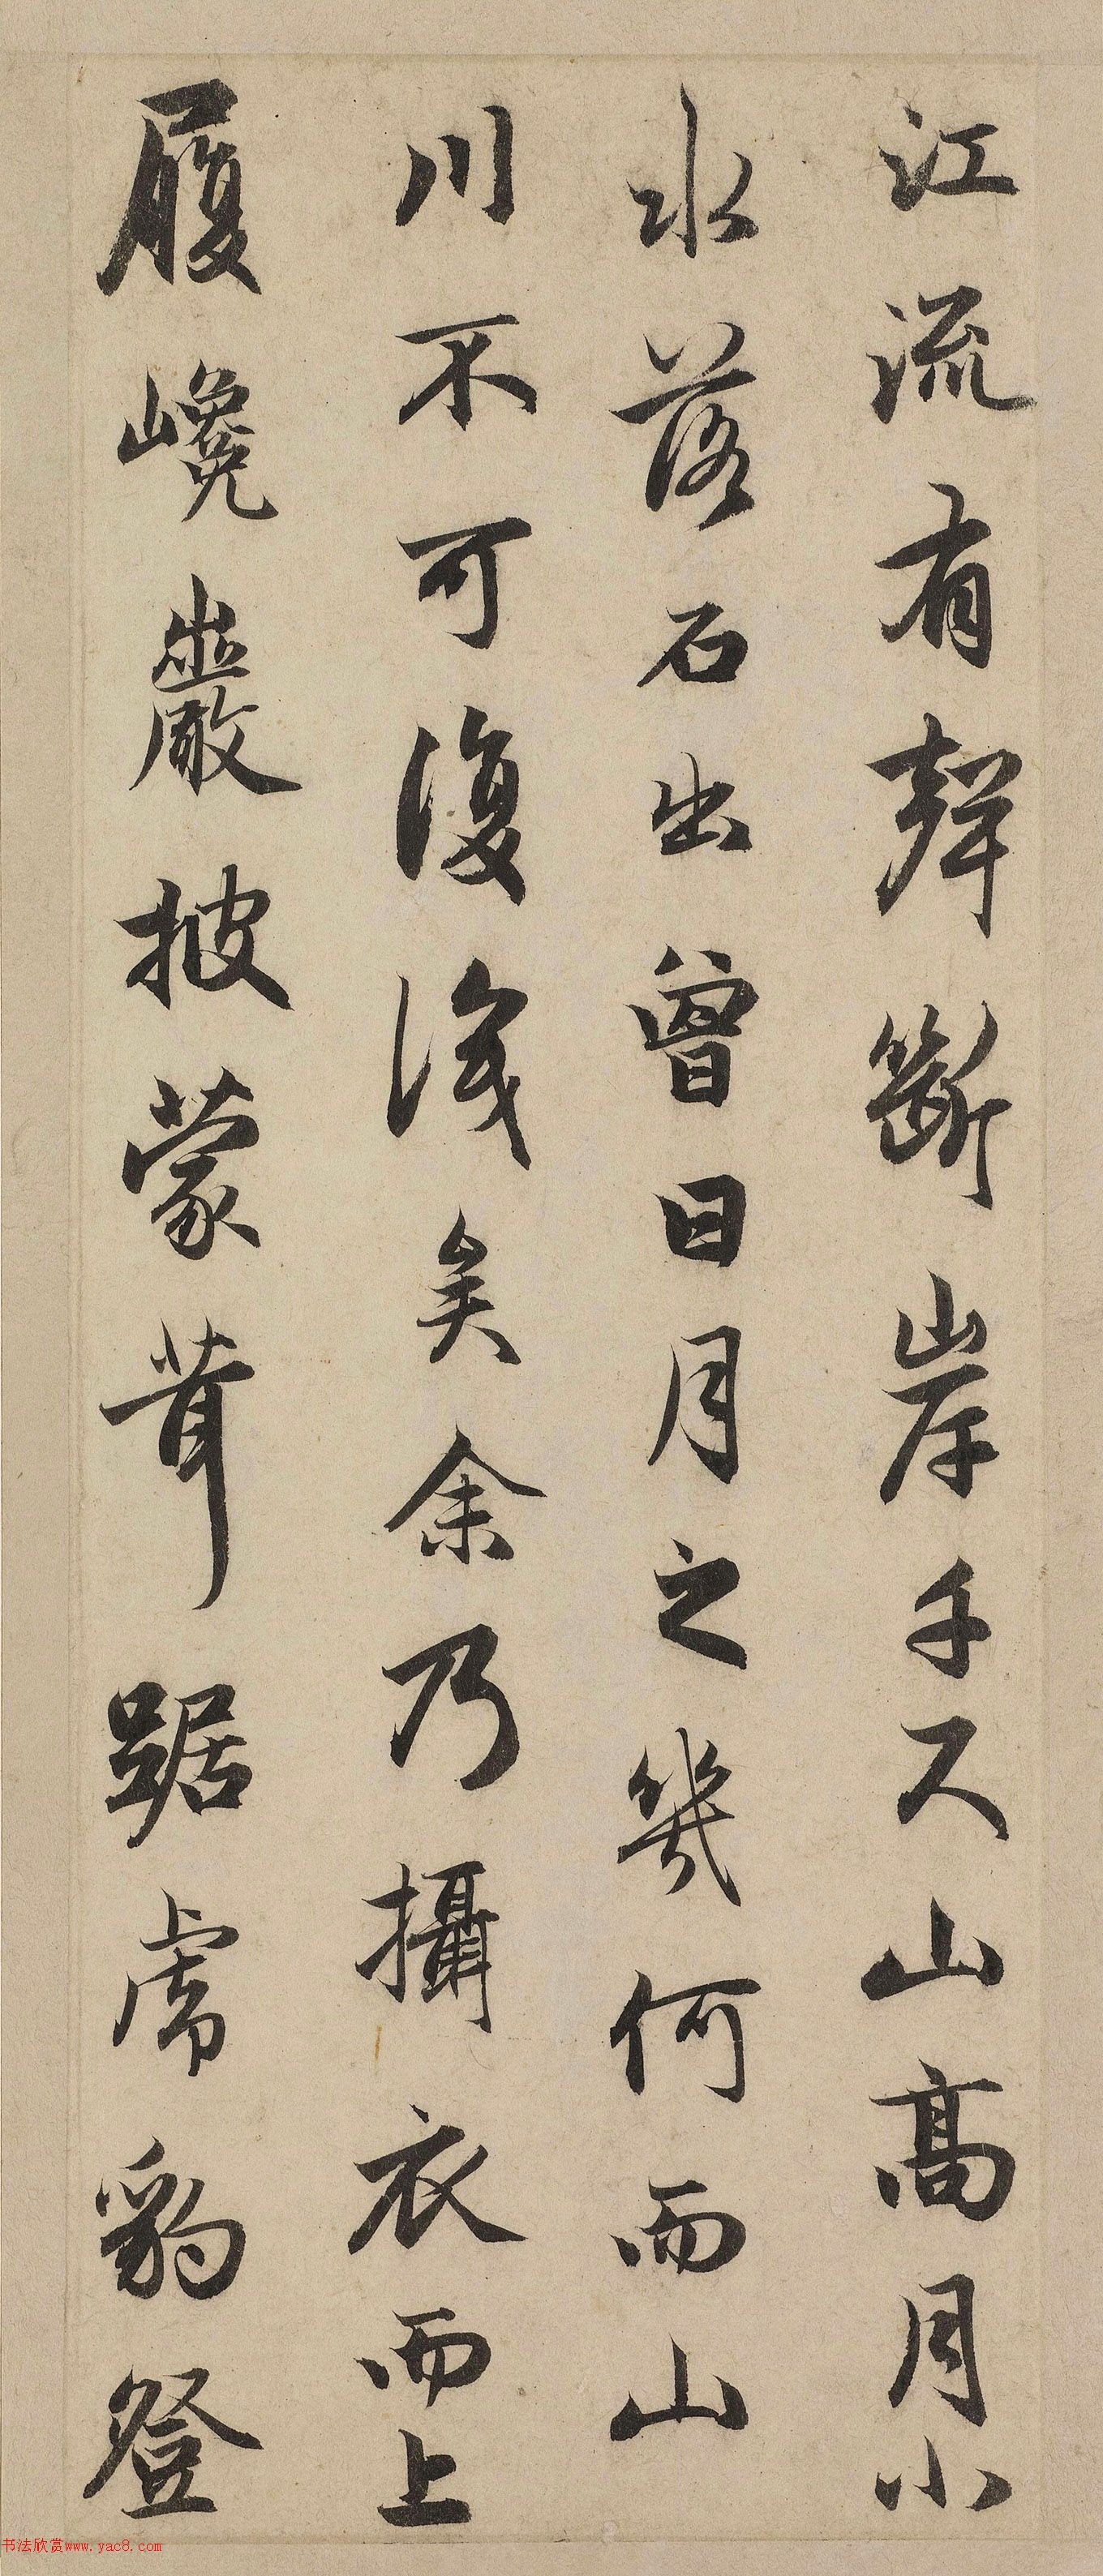 江流有聲斷岸千尺山高月小
水落石出曾日月之幾何而山
川不可復識矣余乃攝衣而上
履巉巖披蒙茸踞虎豹登
书法欣赏www.yac8.com